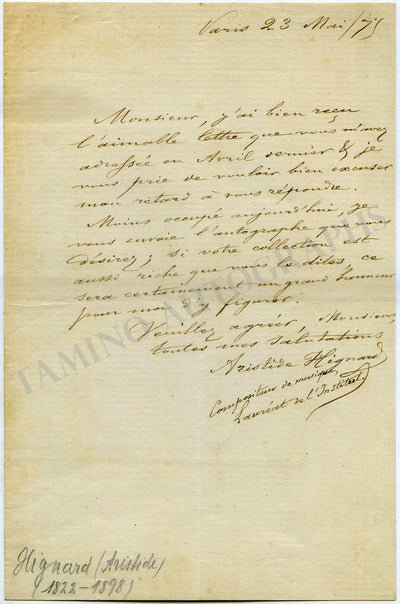 Paris 23 Mai /75
Monsieur, j'ai bien reçu
l'aimable lettre que vous m'avez
adressée en Avril dernier & je
vous prie de vouloir bien excuser
mon retard à vous répondre.
Moins occupé aujourd'hui, je
vous envoie l'autographe que vous
désirez; si votre collection est
aussi riche que vous le dites, ce
sera certainement un grand honneur
pour moi d'y figurer.
Veuillez agréer, Monsieur,
toutes mes salutations
Aristide Hignard
Compositeur de musique,
Lauréat de l'Institut.
TAMINO AUTOGRAPHS
Hignard (Aristide)
(1822-1898)